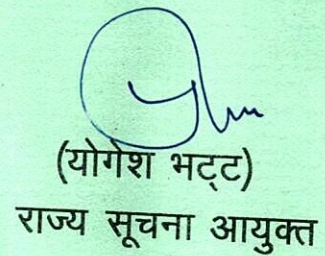 (योगेश भट्ट)
राज्य सूचना आयुक्त